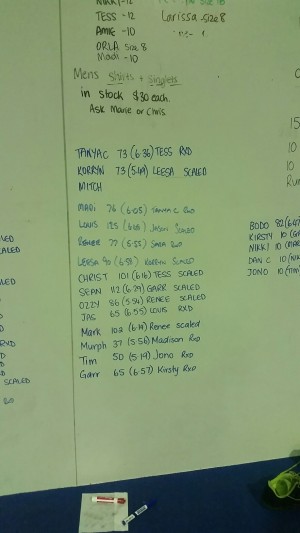 NIKKI -12
TESS -12
Larissa size 8
AMIE -10
ORLA size 8
Madi -10
Mens Shirts + Singlets
in stock $30 each.
Ask Marie or Chris
TANYA C 73 (6:36) TESS RXD
KORRYN 73 (5:49) LEESA SCALED
MITCH
MADI 76 (6:05) TANYA C RXD
LOUIS 125 JASON
RENEE 77 (5:55) SARA RXD
LEESA 90 (6:53) KORRYN SCALED
CHRIST 101 (6:16) TESS SCALED
SEAN 112 (6:29) GARR SCALED
OZZY 86 (5:54) RENEE SCALED
JAS 65 (6:55) LOUIS RXD
Mark 102 (6:19) Renee scaled
Murph 37 (5:56) Madison RxD
Tim 50 (5:19) Jono RxD
Garr 65 (6:57) Kirsty RxD
15
10
10
BODO 82
KIRSTY 10
NIKKI 10
DAN C 10
JONO 10
SCALED